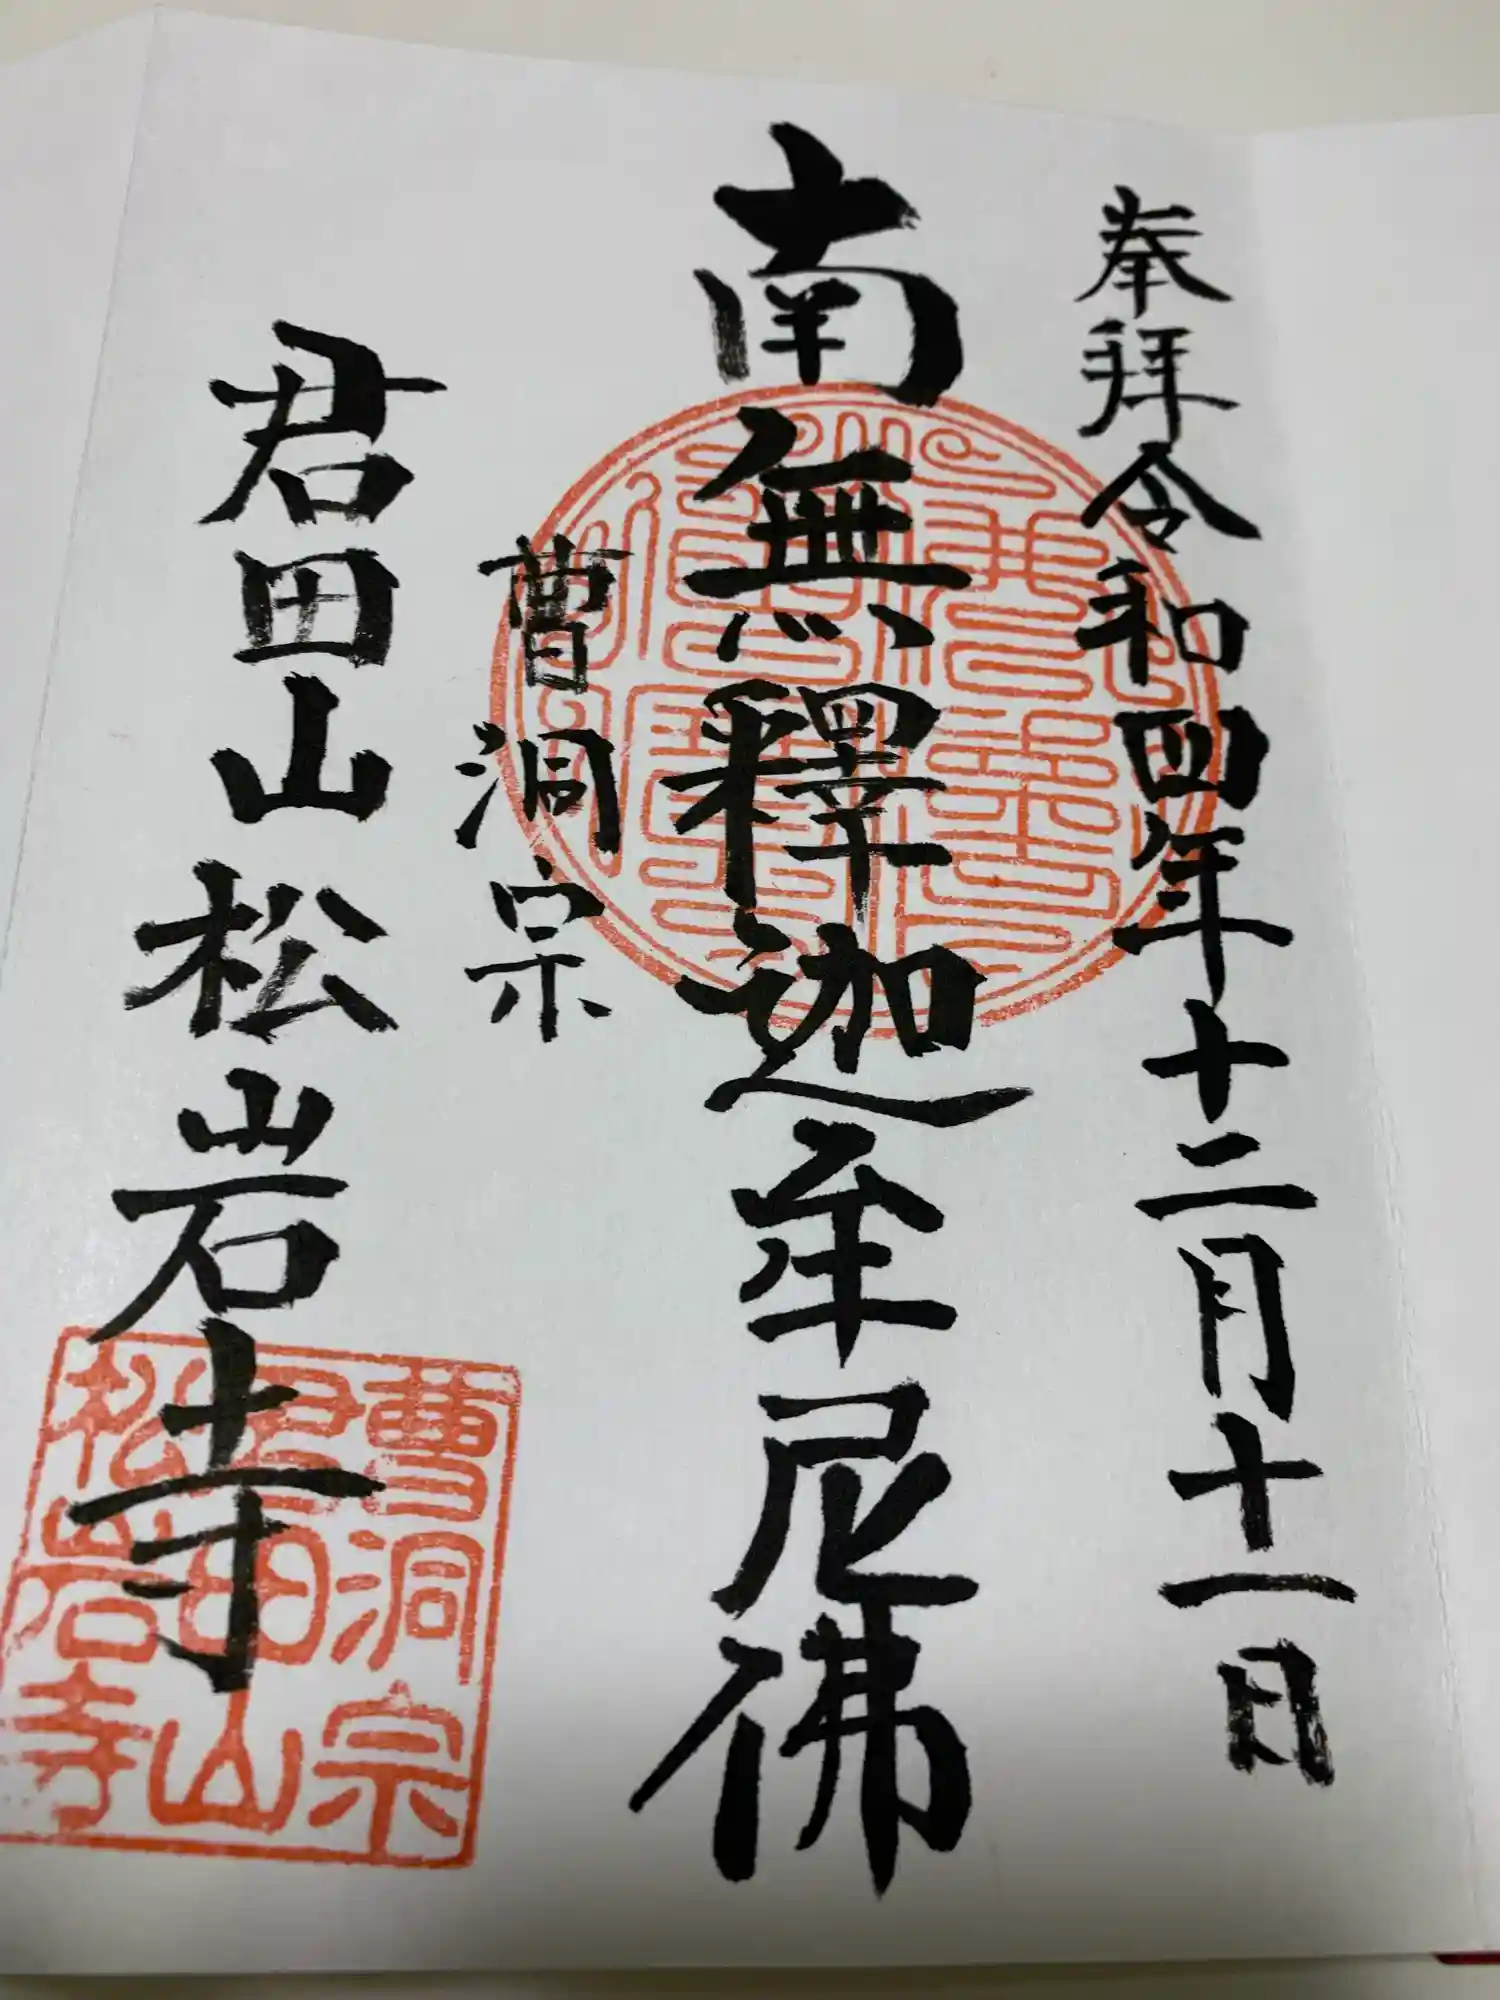 奉拝令和四年十二月十一日
南無釋迦牟尼佛
曹洞宗
君田山松岩寺
曹洞宗
君田山
松岩寺